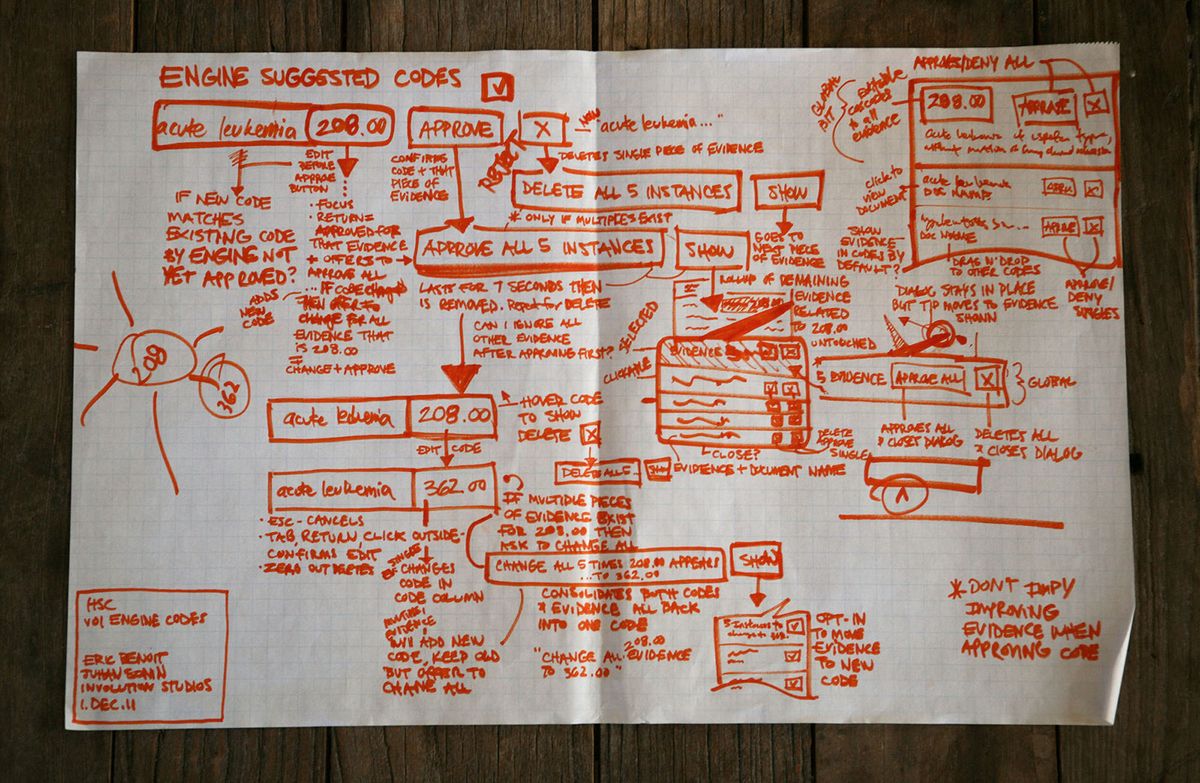 ENGINE SUGGESTED CODES
acute leukemia
208.00
APPROVE
X
REJECT
"acute leukemia..."
DELETES SINGLE PIECE OF EVIDENCE
EDIT
BEFORE
APPROVE
BUTTON
CONFIRMS
CODE + THAT
PIECE OF
EVIDENCE
DELETE ALL 5 INSTANCES
SHOW
* ONLY IF MULTIPLES EXIST
IF NEW CODE
MATCHES
EXISTING CODE
BY ENGINE NOT
YET APPROVED?
ADDS
NEW
CODE
· FOCUS
· RETURN =
APPROVED FOR
THAT EVIDENCE
+ OFFERS TO
APPROVE ALL
... IF CODE CHANGED
THEN OFFER TO
CHANGE FOR ALL
EVIDENCE THAT
IS 208.00
CHANGE + APPROVE
APPROVE ALL 5 INSTANCES
SHOW
GOES TO
NEXT PIECE
OF EVIDENCE
LASTS FOR 7 SECONDS THEN
IS REMOVED. Repeat for DELETE
CAN I IGNORE ALL
OTHER EVIDENCE
AFTER APPROVING FIRST?
ROLLUP OF REMAINING
EVIDENCE
RELATED
TO 208.00
UNTOUCHED
*SELECTED
CLICKABLE
EVIDENCE
CLOSE?
DELETE
APPROVE
SINGLE
EVIDENCE + DOCUMENT NAME
208
362
acute leukemia
208.00
HOVER CODE
TO SHOW
DELETE X
EDIT CODE
DELETE ALL 5...
acute leukemia
362.00
· ESC - CANCELS
· TAB, RETURN, CLICK OUTSIDE -
CONFIRMS EDIT
· ZERO OUT DELETES
IF MULTIPLE PIECES
OF EVIDENCE EXIST
FOR 208.00 THEN
ASK TO CHANGE ALL
CHANGE ALL 5 TIMES 208.00 APPEARS
...TO 362.00
SHOW
SINGLE
CHANGES
CODE IN
CODE COLUMN
MULTIPLE
EVIDENCE
WILL ADD NEW
CODE, KEEP OLD
BUT OFFER TO
CHANGE ALL
CONSOLIDATES BOTH CODES
& EVIDENCE ALL BACK
INTO ONE CODE
"CHANGE ALL 208.00 EVIDENCE
TO 362.00"
OPT-IN
TO MOVE
EVIDENCE
TO NEW
CODE
APPROVE/DENY ALL
GLOBAL
EDIT
editable
cascades
to all
evidence
208.00
APPROVE
X
acute leukemia
DOC NAME
click to
view
DOCUMENT
SHOW
EVIDENCE
IN CODES BY
DEFAULT?
DOC NAME
DRAG N' DROP
TO OTHER CODES
APPROVE/
DENY
SINGLES
DIALOG STAYS IN PLACE
BUT TIP MOVES TO EVIDENCE
SHOWN
5 EVIDENCE
APPROVE ALL
X
GLOBAL
APPROVES ALL
& CLOSES DIALOG
DELETES ALL
& CLOSES DIALOG
*DONT IMPY
IMPROVING
EVIDENCE WHEN
APPROVING CODE
HSC
V01 ENGINE CODES
ERIC BENOIT
JUHAN SONIN
INVOLUTION STUDIOS
1.DEC.11